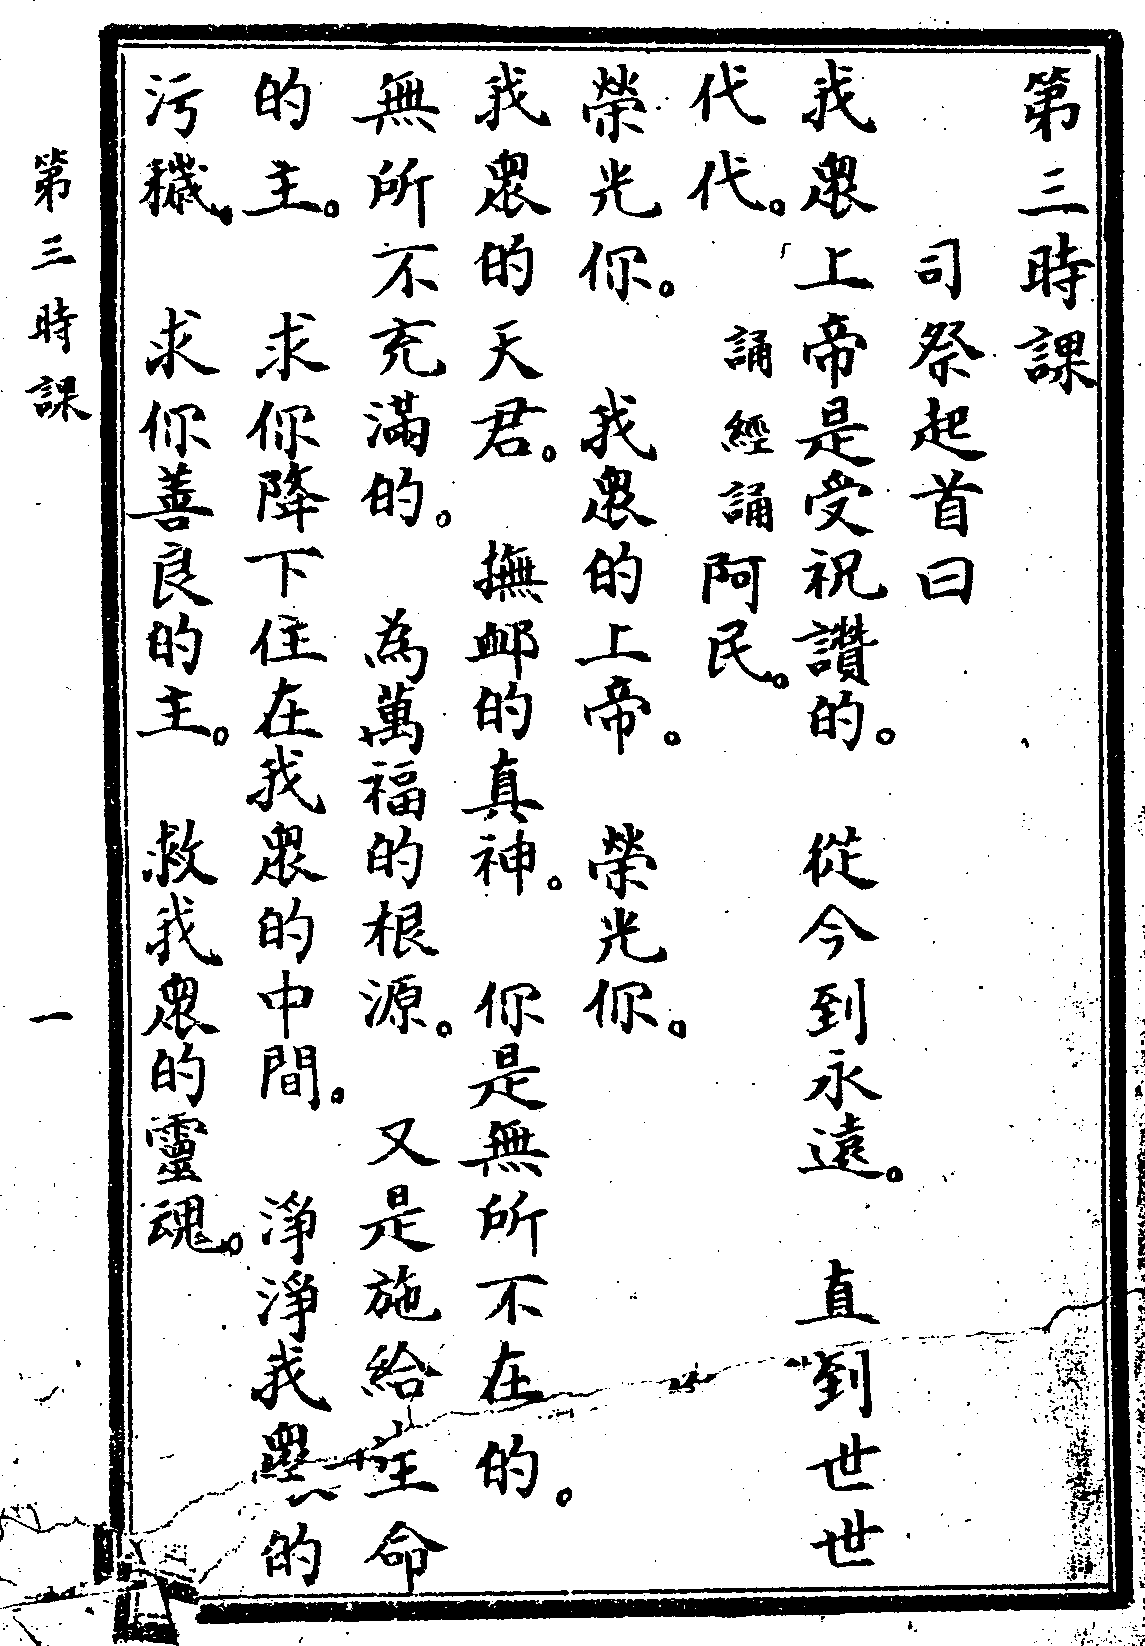 第三時課
司祭起首曰
我眾上帝是受祝讚的。 從今到永遠。 直到世世
代代。 誦經誦阿民。
榮光你。 我眾的上帝。 榮光你。
我眾的天君。 撫卹的真神。 你是無所不在的。
無所不充滿的。 為萬福的根源。 又是施給生命
的主。 求你降下住在我眾的中間。 淨淨我眾的
污穢。 求你善良的主。 救我眾的靈魂。
第三時課 一